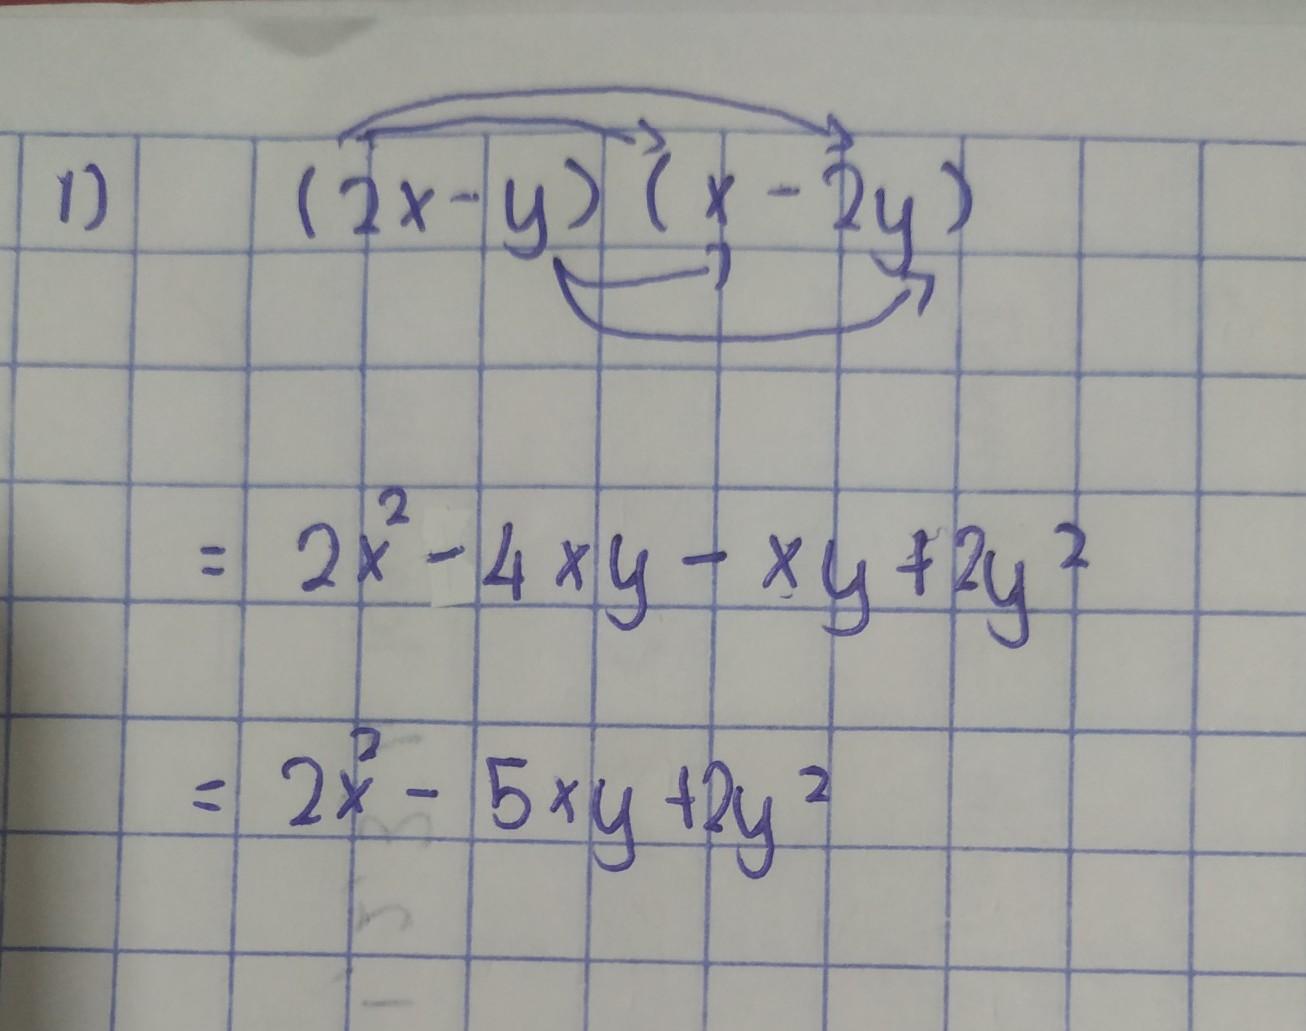 1) (2x-y)(x-2y)
= 2x² - 4xy - xy + 2y²
= 2x² - 5xy + 2y²